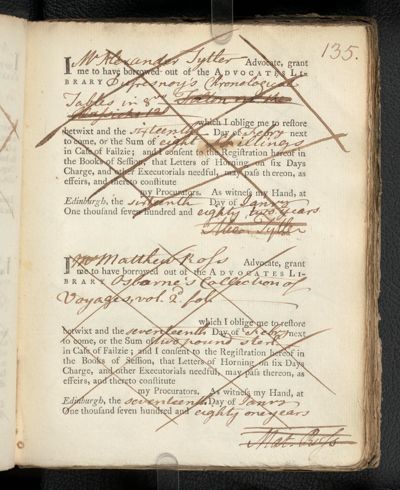 135.
I Mr Alexander Tytler Advocate, grant
me to have borrowed out of the ADVOCATES LI-
BRARY Dufresnoy's Chronological
Tables in 8vo
which I oblige me to restore
betwixt and the sixteenth Day of Febry next
to come, or the Sum of eight shillings
in Case of Failzie; and I consent to the Registration hereof in
the Books of Session, that Letters of Horning on six Days
Charge, and other Executorials needful, may pass thereon, as
effeirs, and thereto constitute
my Procurators. As witness my Hand, at
Edinburgh, the sixteenth Day of Janry
One thousand seven hundred and eighty two years
Alexr Tytler
I Mr Matthew Ross Advocate, grant
me to have borrowed out of the ADVOCATES LI-
BRARY Osborne's Collection of
Voyages, vol. 2d. fol
which I oblige me to restore
betwixt and the seventeenth Day of Febry next
to come, or the Sum of two pound ster.
in Case of Failzie; and I consent to the Registration hereof in
the Books of Session, that Letters of Horning on six Days
Charge, and other Executorials needful, may pass thereon, as
effeirs, and thereto constitute
my Procurators. As witness my Hand, at
Edinburgh, the seventeenth Day of Janry
One thousand seven hundred and eighty one years
Mat. Ross